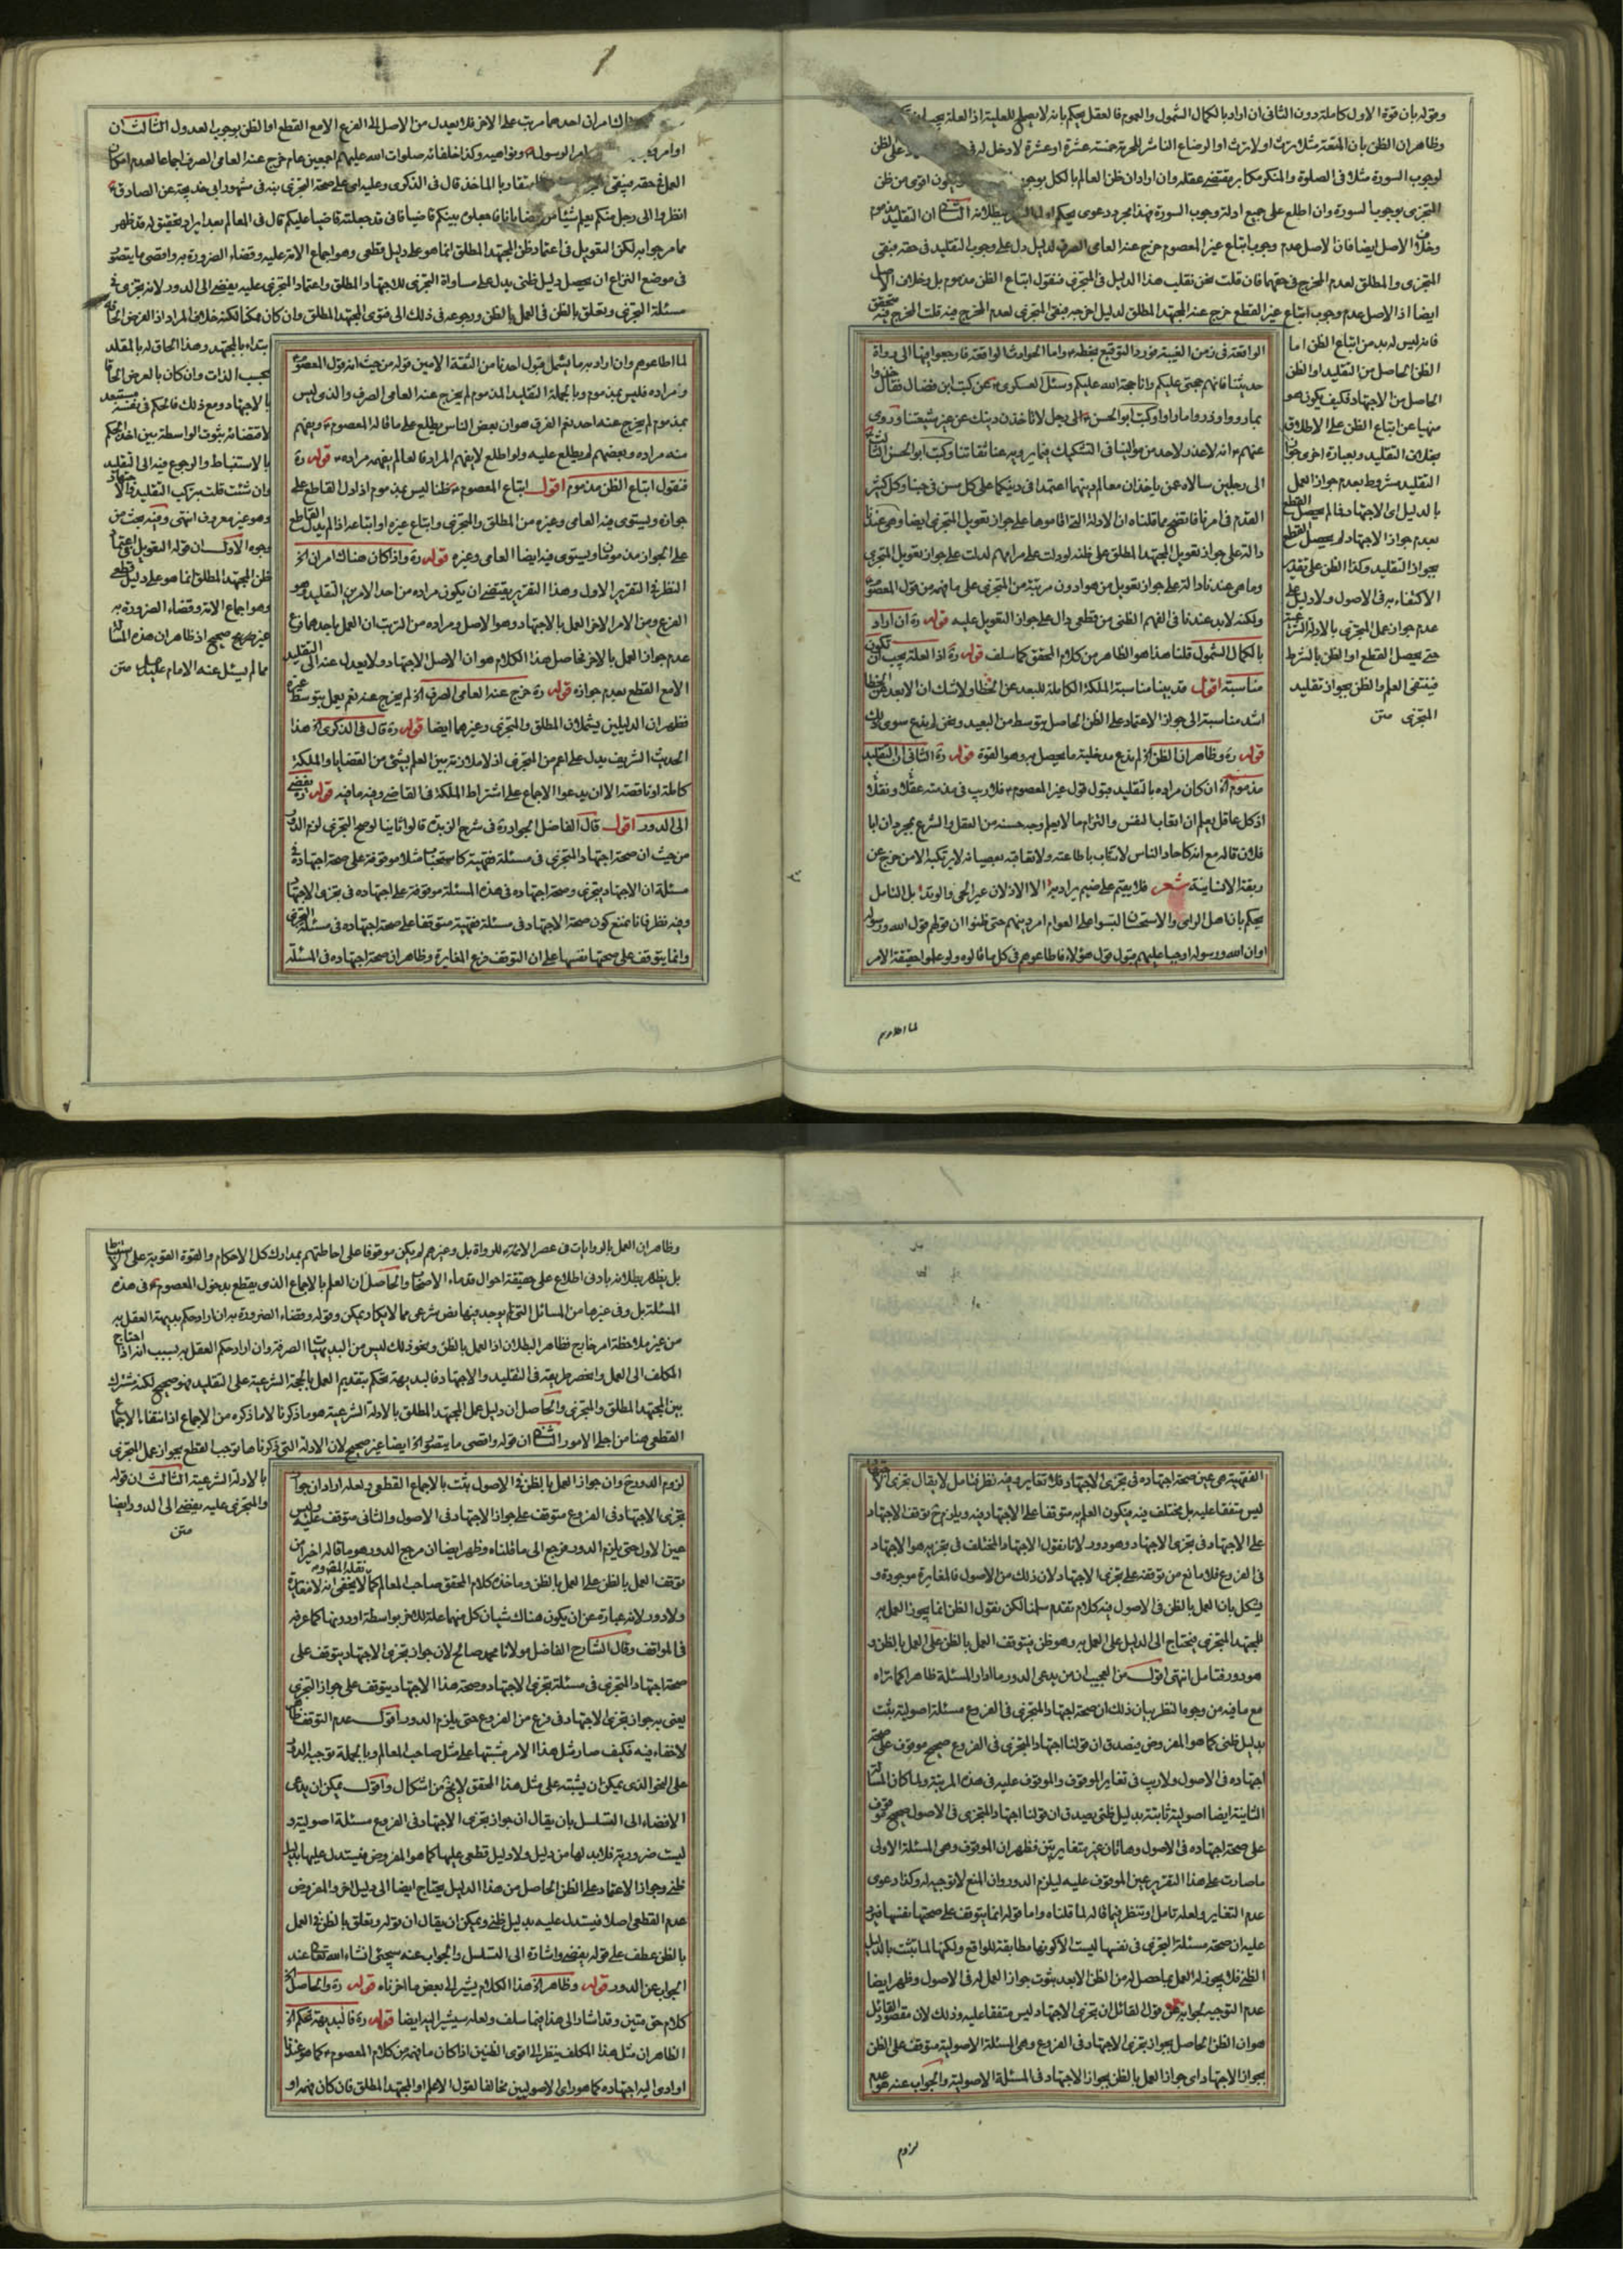 وقوله بان قوة الاول كاملة دون الثانى ان اراد بالكمال الشمول والعموم فالعقل يحكم بانه لا يصلح للعلية اذ العلة يجب ان
وظاهر ان الظن بان المعتبر مثلا يرث او لا يرث او الرضاع الناشر للحرمة خمسة عشرة او عشرة لا دخل له فى على الظن
لوجوب السورة مثلا فى الصلوة والمنكر مكابر بمقتضى عقله وان اراد ان ظن العالم بالكل بوجو يكون اقوى من ظن
المتجزى بوجوب السورة وان اطلع على جميع ادلة وجوب السورة فهذا مجرد دعوى يحكم بطلانه الثانى ان التقليد مذموم
وخلاف الاصل ايضا فان الاصل عدم وجوب اتباع غير المعصوم خرج عنه العامى الصرف لدليل دل على وجوب التقليد فى حقه فبقى
المتجزى والمطلق لعدم المخرج فى حقهما فان قلت نحن نقلب هذا الدليل فى المتجزى فنقول اتباع الظن مذموم بل وخلاف الاصل
ايضا اذ الاصل عدم وجوب اتباع غير القطع خرج عنه المجتهد المطلق لدليل اخرجه فبقى المتجزى لعدم المخرج فيه قلت المخرج فيه متحقق
فانه ليس له بد من اتباع الظن اما
الظن الحاصل من التقليد او الظن
الحاصل من الاجتهاد فكيف يكون هو
منهيا عن اتباع الظن على الاطلاق
بخلاف التقليد وبعبارة اخرى جواز
التقليد مشروط بعدم جواز العمل
بالدليل اى الاجتهاد فما لم يحصل القطع
بعدم جواز الاجتهاد لم يحصل القطع
بجواز التقليد وكذا الظن على تقدير
الاكتفاء به فى الاصول ولا دليل على
عدم جواز عمل المتجزى بالادلة الشرعية
حتى يحصل القطع او الظن بالشرط
فينتفى العلم والظن بجواز تقليد
المتجزى متن
الواقعة فى زمن الغيبة فورد التوقيع بخطه واما الحوادث الواقعة فارجعوا فيها الى رواة
حديثنا فانهم حجتى عليكم وانا حجة الله عليكم وسئل العسكرى عن كتب ابن فضال فقال خذوا
بما رووا وذروا ما راوا وكتب ابو الحسن الى رجل لا تاخذن دينك عن غير شيعتنا وروى
عنهم انه لا عذر لاحد من موالينا فى التشكيك فيما يرويه عنا ثقاتنا وكتب ابو الحسن الثالث
الى رجلين سالاه عمن ياخذان معالم دينهما اعتمدا فى دينكما على كل مسن فى حبنا وكل كثير
القدم فى امرنا فاتضح مما قلناه ان الادلة التى اقاموها على جواز تقويل المتجزى ايضا وهى عندنا
دالة على جواز تقويل المجتهد المطلق على ظنه لو دلت على مرامهم لدلت على جواز تقويل المتجزى
وما هى عندنا دالة على جواز تقويل من هو ادون مرتبة من المتجزى على ما فهمه من قول المعصوم
ولكنه لا بد عندنا فى الفهم الظنى من قطعى دال على جواز التقويل عليه قوله ره ان اراد
بالكمال الشمول قلنا هذا هو الظاهر من كلام المحقق كما سلف قوله ره اذ العلة يجب ان تكون
مناسبة اقول قد بينا مناسبة الملكة الكاملة للبعد عن الخطا ولا شك ان الابعد عن الخطا
اشد مناسبة الى جواز الاعتماد على الظن الحاصل بتوسط من البعيد ونحن لم ندع سوى ذلك
قوله ره وظاهر ان الظن اه لم يدع مدخلية ما يحصل به وهو القوة قوله ره الثانى ان التقليد
مذموم اه ان كان مراده بالتقليد قبول قول غير المعصوم فلا ريب فى مذمته عقلا ونقلا
اذ كل عاقل يعلم ان اتعاب النفس والتزام ما لا يعلم وجه حسنه من العقل والشرع بمجرد ان ابا
فلان قاله مع انه كاحاد الناس لا تثاب باطاعته ولا تعاقبه بعصيانه لا يرتكبه الا من خرج عن
ربقة الانسانية شعر فلا يقيم على ضيم يراد به الا الاذلان عير الحى والوتد بل التامل
يحكم بان اهل الراى والاستحسان البسوا على العوام امر دينهم حتى ظنوا ان قولهم قول الله ورسوله
او ان الله ورسوله اوجبا عليهم قبول قول هؤلاء فاطاعوهم فى كل ما قالوه ولو علموا حقيقة الامر
لما اطاعوهم
هناك امران احدهما مرتب على الاخر فلا يعدل من الاصل الى الفرع الا مع القطع او الظن بوجوب العدول الثالث ان
اوامر الرسول ونواهيه وكذا خلفائه صلوات الله عليهم اجمعين عام خرج عنه العامى الصرف اجماعا لعدم امكان
العمل فى حقه فبقى بالماخذ قال فى الذكرى وعليه اى على صحة التجزى نبه فى مشهور ابى خديجة عن الصادق
انظروا الى رجل منكم يعلم شيئا من قضايانا فاجعلوه بينكم قاضيا فانى قد جعلته قاضيا عليكم قال فى المعالم بعد ايراد تحقيق له قد ظهر
مما مر جوابه لكن التعويل فى اعتماد ظن المجتهد المطلق انما هو على دليل قطعى وهو اجماع الامة عليه وقضاء الضرورة به واقصى ما يتصور
فى موضع النزاع ان يحصل دليل ظنى يدل على مساواة التجزى للاجتهاد المطلق واعتماد المتجزى عليه يفضى الى الدور لانه تجزى فى
مسئلة التجزى وتعلق بالظن فى العمل بالظن ورجوعه فى ذلك الى فتوى المجتهد المطلق وان كان ممكنا لكنه خلاف المراد اذ الفرض الحاقه
ابتداء بالمجتهد وهذا الحاق له بالمقلد
بحسب الذات وان كان بالعرض الحاقا
بالاجتهاد ومع ذلك فالحكم فى نفسه مستبعد
لاقتضائه ثبوت الواسطة بين اخذ الحكم
بالاستنباط والرجوع فيه الى التقليد
وان شئت قلت بتركيب التقليد والاجتهاد
وهو غير معروف انتهى وفيه بحث من
وجوه الاول ان قوله التعويل فى اعتماد
ظن المجتهد المطلق انما هو على دليل قطعى
وهو اجماع الامة وقضاء الضرورة به
غير صحيح اذ ظاهر ان هذه المسئلة
مما لم يسئل عنه الامام متن
لما اطاعوهم وان اراد به ما يشمل قبول احدنا من الثقة الامين قوله من حيث انه قول المعصوم
ومراده فليس بمذموم وبالجملة التقليد المذموم لم يخرج عنه العامى الصرف والذى ليس
بمذموم لم يخرج عنه احد نعم الفرق هو ان بعض الناس يطلع على ما قاله المعصوم ويفهم
منه مراده وبعضهم لم يطلع عليه ولو اطلع لا يفهم المراد فالعالم يفهمه مراده قوله ره
فنقول اتباع الظن مذموم اقول اتباع المعصوم ظنا ليس بمذموم اذا دل القاطع على
جوازه ويستوى فيه العامى وغيره من المطلق والمتجزى واتباع غيره او اتباعه اذا لم يدل القاطع
على الجواز مذموم ويستوى فيه ايضا العامى وغيره قوله ره واذ كان هناك امران اه
النظر فى التقرير الاول وهذا التقرير يقتضى ان يكون مراده من احد الامرين التقليد وهو
الفرع ومن الامر الاخر العمل بالاجتهاد وهو الاصل ومراده من الترتب ان العمل باحدهما فرع
عدم جواز العمل بالاخر فحاصل هذا الكلام هو ان الاصل الاجتهاد ولا يعدل عنه الى التقليد
الا مع القطع بعدم جوازه قوله ره خرج عنه العامى الصرف اه لم يخرج عنه نعم يعمل بتوسط غيره
فظهر ان الدليلين يشملان المطلق والمتجزى وغيرهما ايضا قوله ره قال فى الذكرى اه هذا
الحديث الشريف يدل على اعم من المتجزى اذ لا ملازمة بين العلم بشئ من القضايا والملكة
كاملة او ناقصة الا ان يدعوا الاجماع على اشتراط الملكة فى القاضى وفيه ما فيه قوله ره يفضى
الى الدور اقول قال الفاضل الجواد ره فى شرح الزبدة قالوا ثانيا لو صح التجزى لزم الدور
من حيث ان صحة اجتهاد المتجزى فى مسئلة فقهية كاستحباب مثلا موقوفة على صحة اجتهاده فى
مسئلة ان الاجتهاد يتجزى وصحة اجتهاده فى هذه المسئلة موقوفة على اجتهاده فى تجزى الاجتهاد
وفيه نظر فانا نمنع كون صحة الاجتهاد فى مسئلة فقهية متوقفا على صحة اجتهاده فى مسئلة التجزى
وانما يتوقف على صحتها نفسها على ان التوقف فرع المغايرة وظاهر ان صحة اجتهاده فى المسئلة
الفقهية هى عين صحة اجتهاده فى تجزى الاجتهاد فلا تغاير وفيه نظر فتامل لا يقال تجزى الاجتهاد
ليس متفقا عليه بل مختلف فيه فيكون العلم به متوقفا على الاجتهاد فيه ويلزم ح توقف الاجتهاد
على الاجتهاد فى تجزى الاجتهاد وهو دور لانا نقول الاجتهاد المختلف فى تجزيه هو الاجتهاد
فى الفروع فلا مانع من توقفه على تجزى الاجتهاد لان ذلك من الاصول فالمغايرة موجودة و
يشكل بان العمل بالظن فى الاصول فيه كلام تقدم سلمنا لكن نقول الظن انما يجوز العمل به
للمجتهد المتجزى فيحتاج الى الدليل على العمل به وهو ظن فيتوقف العمل بالظن على العمل بالظن و
هو دور فتامل انتهى اقول من العجيب ان من يدعى الدور ما ادار المسئلة ظاهرا كما تراه
مع ما فيه من وجوه النظر بيان ذلك ان صحة اجتهاد المتجزى فى الفروع مسئلة اصولية يثبت
بدليل ظنى كما هو المفروض فيصدق ان قولنا اجتهاد المتجزى فى الفروع صحيح موقوف على صحة
اجتهاده فى الاصول ولا ريب فى تغاير الموقوف والموقوف عليه فى هذه المرتبة ولما كان المسئلة
الثانية ايضا اصولية ثابتة بدليل ظنى يصدق ان قولنا اجتهاد المتجزى فى الاصول صحيح موقوف
على صحة اجتهاده فى الاصول وهاتان غير متغايرتين فظهر ان الموقوف وهى المسئلة الاولى
ما صارت على هذا التقرير عين الموقوف عليه ليلزم الدور وان المنع لا توجيه له وكذا دعوى
عدم التغاير ولعله تامل وتنظر فيما قاله لما قلناه واما قوله انما يتوقف على صحتها نفسها فيرد
عليه ان صحة مسئلة التجزى فى نفسها ليست الا كونها مطابقة للواقع ولكنها لما تثبت بالدليل
الظنى فلا يجوز له العمل بما حصل له من الظن الا بعد ثبوت جواز العمل له فى الاصول وظهر ايضا
عدم التوجيه لجوابه عن قول القائل ان تجزى الاجتهاد ليس متفقا عليه وذلك لان مقصود القائل
هو ان الظن الحاصل بجواز تجزى الاجتهاد فى الفروع وهى المسئلة الاصولية متوقف على الظن
بجواز الاجتهاد اى جواز العمل بالظن بجواز الاجتهاد فى المسئلة الاصولية والجواب عنه هو عدم
لزوم
وظاهر ان العمل بالروايات فى عصر الائمة للرواة بل وغيرهم لم يكن موقوفا على احاطتهم بمدارك كل الاحكام والقوة القوية على الاستنباط
بل يظهر بطلانه بادنى اطلاع على حقيقة احوال قدماء الاصحاب والحاصل ان العلم بالاجماع الذى يقطع بدخول المعصوم فى هذه
المسئلة بل وفى غيرها من المسائل التى لم يوجد فيها نص شرعى مما لا يكاد يمكن وقوله وقضاء الضرورة به ان اراد حكم بديهة العقل به
من غير ملاحظة امر خارج فظاهر البطلان اذ العمل بالظن ونحو ذلك ليس من البديهيات الصرفة وان اراد حكم العقل به بسبب انه اذا احتاج
المكلف الى العمل وانحصر طريقه فى التقليد والاجتهاد فالبديهة تحكم بتقديم العمل بالحجة الشرعية على التقليد فهو صحيح لكنه مشترك
بين المجتهد المطلق والمتجزى والحاصل ان دليل عمل المجتهد المطلق بالادلة الشرعية هو ما ذكرنا لا ما ذكره من الاجماع اذ انتفاء الاجماع
القطعى هنا من اجلى الامور الثانى ان قوله واقصى ما يتصور اه ايضا غير صحيح لان الادلة التى ذكرناها توجب القطع بجواز عمل المتجزى
بالادلة الشرعية الثالث ان قوله
والمتجزى عليه يفضى الى الدور ايضا
متن
لزوم الدور ح وان جواز العمل بالظن فى الاصول يثبت بالاجماع القطعى ولعله اراد ان جواز
تجزى الاجتهاد فى الفروع متوقف على جواز الاجتهاد فى الاصول والثانى متوقف عليه وليس
عين الاول حتى يلزم الدور فرجع الى ما قلناه وظهر ايضا ان مرجع الدور هو ما قاله اخيرا من
توقف العمل بالظن على العمل بالظن وماخذه كلام المحقق صاحب المعالم كما لا يخفى انه لا مغايرة
ولا دور لانه عبارة عن ان يكون هناك شيئان كل منهما علة للاخر بواسطة او دونها كما عرف
فى المواقف وقال الشارح الفاضل مولانا محمد صالح لان جواز تجزى الاجتهاد يتوقف على
صحة اجتهاد المتجزى فى مسئلة تجزى الاجتهاد وصحة هذا الاجتهاد يتوقف على جواز التجزى
يعنى به جواز تجزى الاجتهاد فى فرع من الفروع حتى يلزم الدور اقول عدم التوقف ظاهر
لا خفاء فيه فكيف صار مثل هذا الامر مشتبها على مثل صاحب المعالم وبالجملة توجيه الدور
على النحو الذى يمكن ان يشتبه على مثل هذا المحقق لا يخ من اشكال واقول يمكن ان يدعى
الافضاء الى التسلسل بان يقال ان جواز تجزى الاجتهاد فى الفروع مسئلة اصولية و
ليست ضرورية فلا بد لها من دليل ولا دليل قطعى عليها كما هو المفروض فيستدل عليها بدليل
ظنى وجواز الاعتماد على الظن الحاصل من هذا الدليل يحتاج ايضا الى دليل اخر والمفروض
عدم القطعى اصلا فيستدل عليه بدليل ظنى ويمكن ان يقال ان قوله وتعلق بالظن فى العمل
بالظن عطف على قوله يفضى واشارة الى التسلسل والجواب عنه سيجئ انشاء الله تعالى عند
الجواب عن الدور قوله وظاهر اه هذا الكلام يشير الى بعض ما اخرناه قوله ره والحاصل اه
كلام حق متين وقد اشار الى هذا فيما سلف ولعله سيشير اليه ايضا قوله ره فالبديهة تحكم اه
الظاهر ان مثل هذا المكلف ينظر الى اقوى الظنين اذا كان ما فهمه من كلام المعصوم كما هو عندنا
او ادى اليه اجتهاده كما هو راى الاصوليين مخالفا لقول الاعلم او المجتهد المطلق فان كان فهمه او